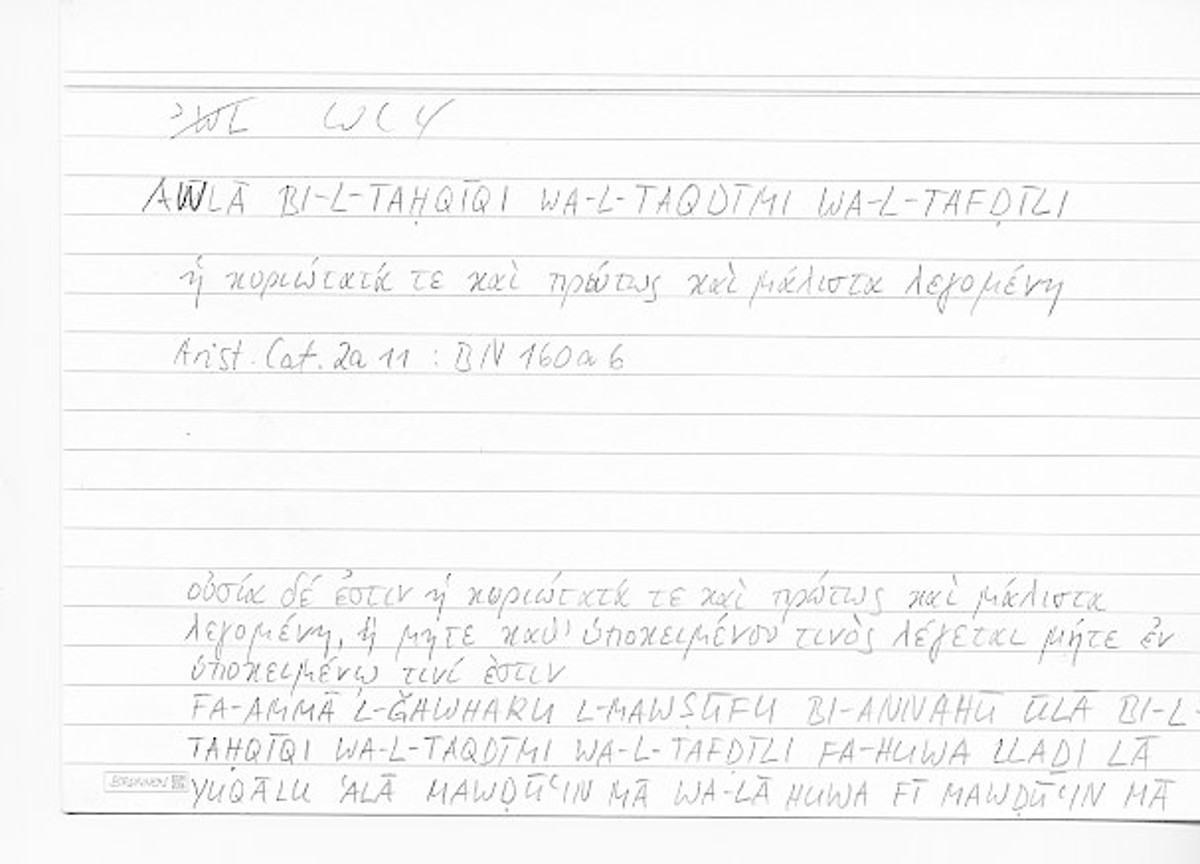 WLY
AWLĀ BI-L-TAḤQĪQI WA-L-TAQDĪMI WA-L-TAFḌĪLI
ἡ κυριώτατά τε καὶ πρώτως καὶ μάλιστα λεγομένη
Arist. Cat. 2a 11 : BN 160a6
οὐσία δέ ἐστιν ἡ κυριώτατά τε καὶ πρώτως καὶ μάλιστα
λεγομένη, ἣ μήτε καθ' ὑποκειμένου τινὸς λέγεται μήτε ἐν
ὑποκειμένῳ τινί ἐστιν
FA-AMMĀ L-ǦAWHARU L-MAWṢŪFU BI-ANNAHŪ ŪLĀ BI-L-
TAḤQĪQI WA-L-TAQDĪMI WA-L-TAFḌĪLI FA-HUWA LLADI LĀ
BRUNNEN YUQĀLU ʿALĀ MAWḌŪʿIN MĀ WA-LĀ HUWA FĪ MAWḌŪʿIN MĀ